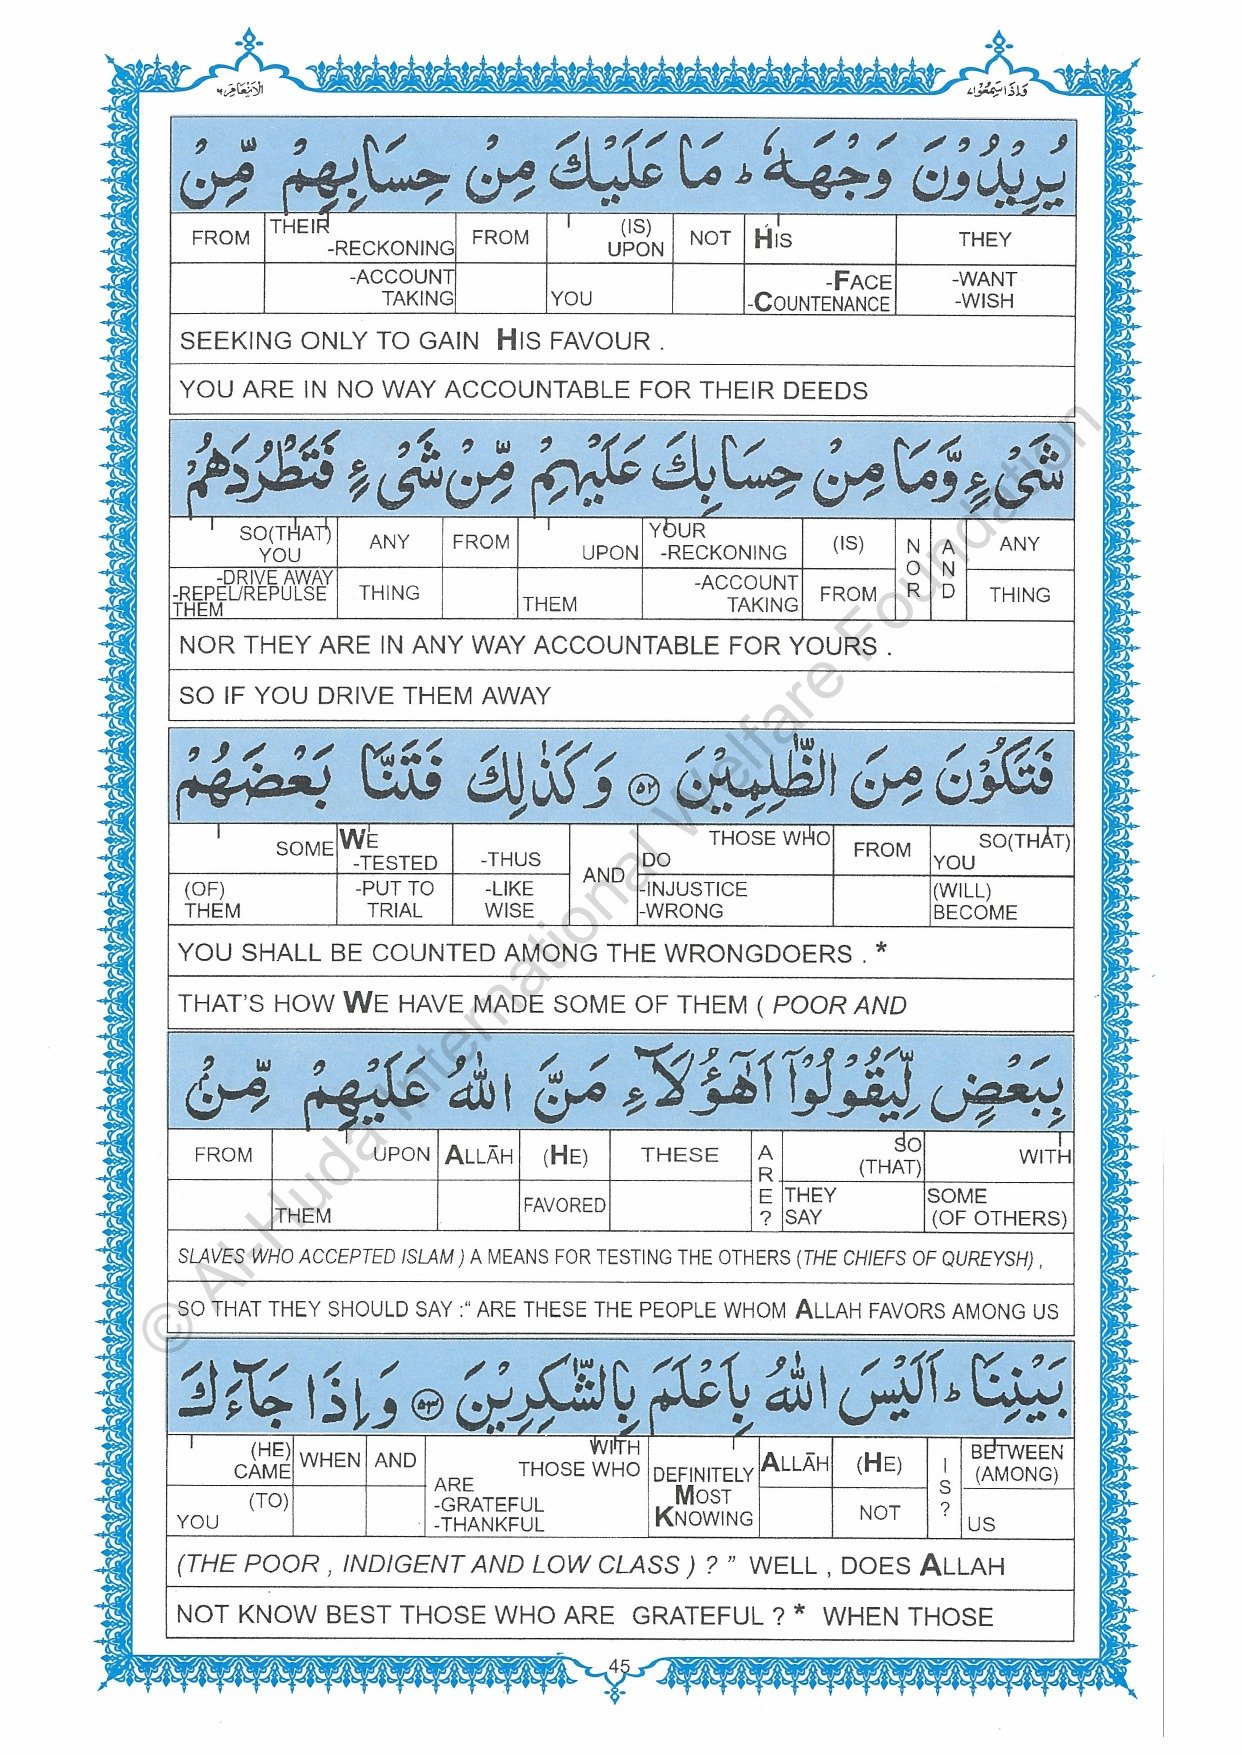 الانعام ٦
واذا سمعوا ٧
يُرِيْدُوْنَ وَجْهَهٗ ؕ مَا عَلَيْكَ مِنْ حِسَابِهِمْ مِّنْ
FROM THEIR FROM (IS) NOT HIS THEY
-RECKONING UPON
-ACCOUNT -FACE -WANT
TAKING YOU -COUNTENANCE -WISH
SEEKING ONLY TO GAIN HIS FAVOUR .
YOU ARE IN NO WAY ACCOUNTABLE FOR THEIR DEEDS
شَىْءٍ وَّمَا مِنْ حِسَابِكَ عَلَيْهِمْ مِّنْ شَىْءٍ فَتَطْرُدَهُمْ
SO(THAT) ANY FROM YOUR (IS) NOR AND ANY
YOU UPON -RECKONING
-DRIVE AWAY THING -ACCOUNT FROM THING
-REPEL/REPULSE THEM TAKING
THEM
NOR THEY ARE IN ANY WAY ACCOUNTABLE FOR YOURS .
SO IF YOU DRIVE THEM AWAY
فَتَكُوْنَ مِنَ الظّٰلِمِيْنَ ۝٥٢ وَكَذٰلِكَ فَتَنَّا بَعْضَهُمْ
SOME WE -THUS AND THOSE WHO FROM SO(THAT)
-TESTED DO YOU
(OF) -PUT TO -LIKE -INJUSTICE (WILL)
THEM TRIAL WISE -WRONG BECOME
YOU SHALL BE COUNTED AMONG THE WRONGDOERS . *
THAT'S HOW WE HAVE MADE SOME OF THEM ( POOR AND
بِبَعْضٍ لِّيَقُوْلُوْۤا اَهٰۤؤُلَآءِ مَنَّ اللّٰهُ عَلَيْهِمْ مِّنْۢ
FROM UPON ALLĀH (HE) THESE ARE? SO WITH
(THAT)
THEM FAVORED THEY SOME
SAY (OF OTHERS)
SLAVES WHO ACCEPTED ISLAM ) A MEANS FOR TESTING THE OTHERS (THE CHIEFS OF QUREYSH) ,
SO THAT THEY SHOULD SAY :“ ARE THESE THE PEOPLE WHOM ALLAH FAVORS AMONG US
بَيْنِنَا ؕ اَلَيْسَ اللّٰهُ بِاَعْلَمَ بِالشّٰكِرِيْنَ ۝٥٣ وَاِذَا جَآءَكَ
(HE) WHEN AND WITH DEFINITELY ALLĀH (HE) IS? BETWEEN
CAME THOSE WHO MOST (AMONG)
(TO) ARE KNOWING NOT US
YOU -GRATEFUL
-THANKFUL
(THE POOR , INDIGENT AND LOW CLASS ) ? ” WELL , DOES ALLAH
NOT KNOW BEST THOSE WHO ARE GRATEFUL ? * WHEN THOSE
45
© Al-Huda International Welfare Foundation